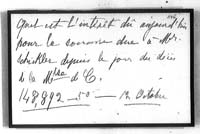 Quel est l'intérêt dû aujourd'hui
pour la somme due à Mr.
Schickler depuis le jour du décès
de la Mise de C.
148,892 — 50 — 12 Octobre